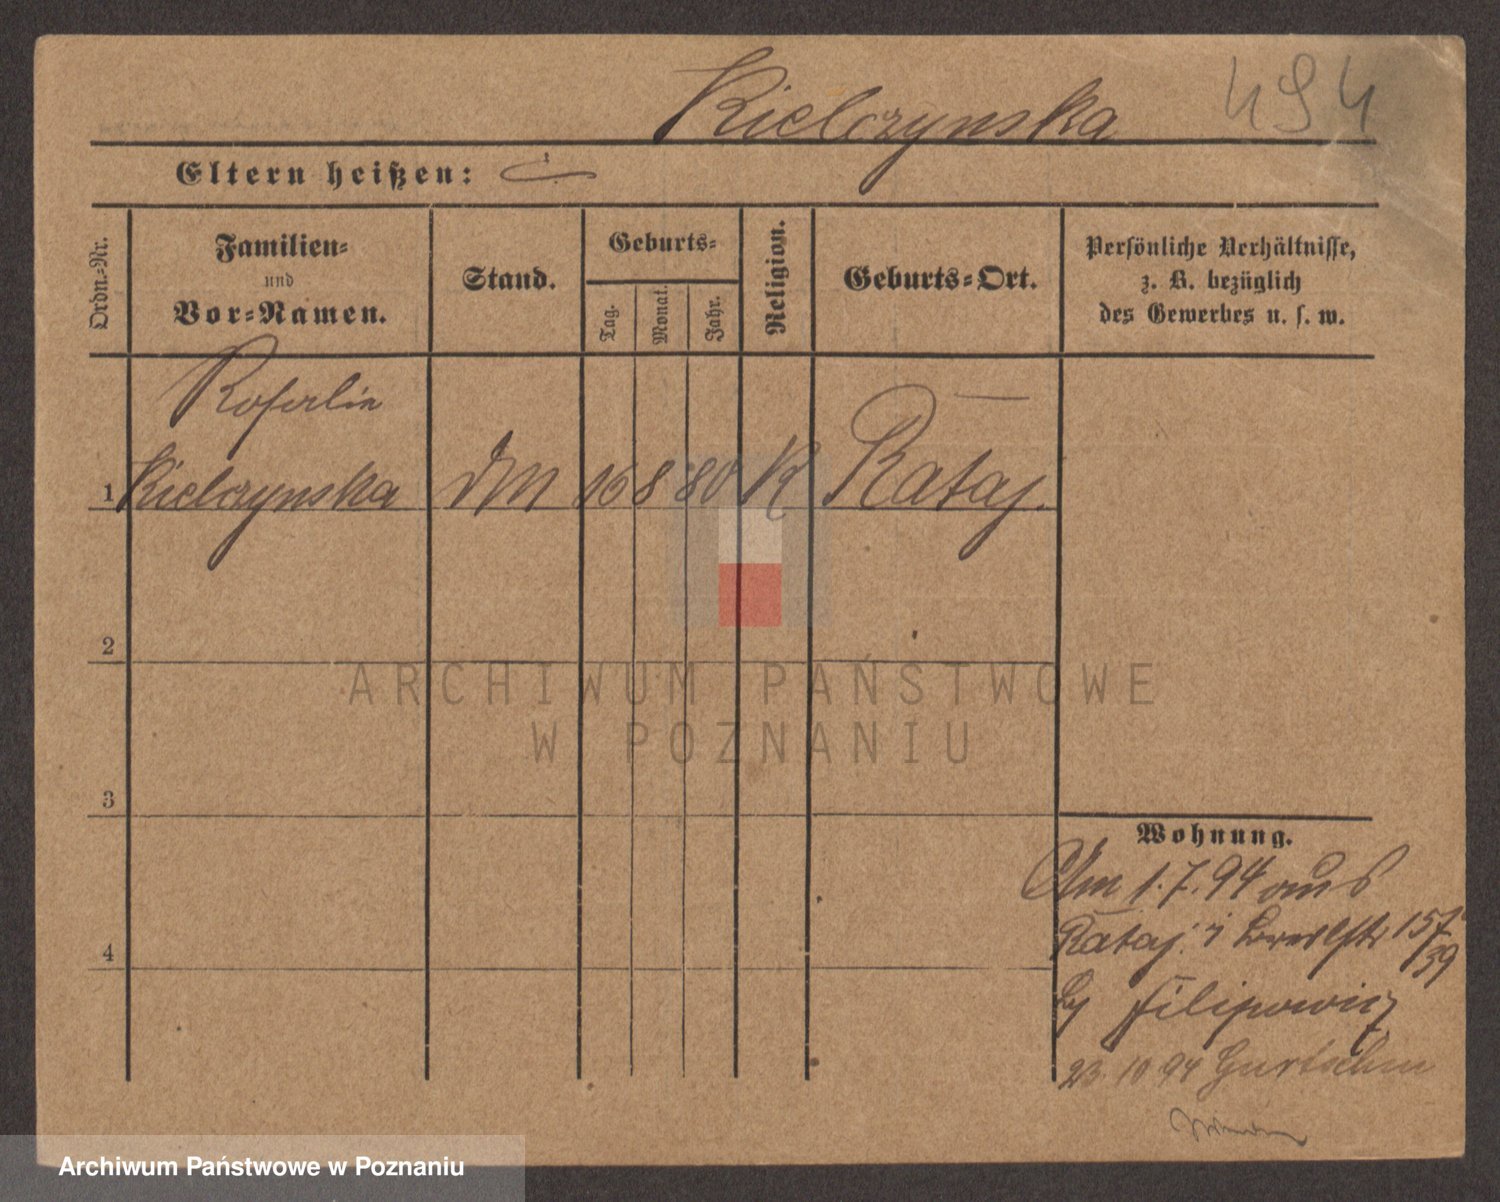 Kielczynska 494
Eltern heißen:
Ordn.=Nr.
Familien=
und
Vor=Namen.
Stand.
Geburts=
Tag.
Monat.
Jahr.
Religion.
Geburts=Ort.
Persönliche Verhältnisse,
z. B. bezüglich
des Gewerbes u. s. w.
Rosalie
1 Kielczynska DM 16 8 80 K Rataj.
2
ARCHIWUM PAŃSTWOWE
W POZNANIU
3
Wohnung.
Am 1.7.94 aus
Rataj. 157/39
4
by Filipowicz
23.10 94 Gurtschin
Archiwum Państwowe w Poznaniu